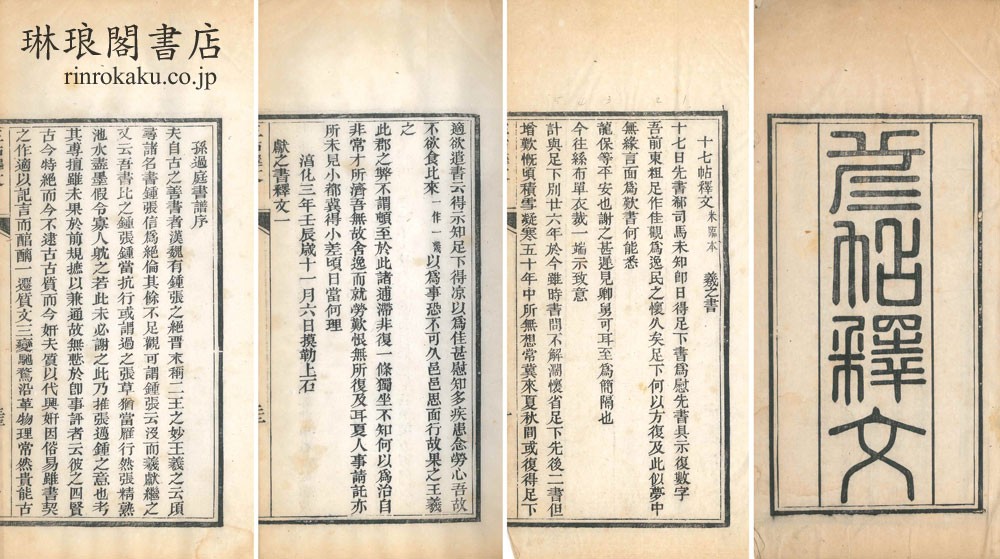 琳琅閣書店
rinrokaku.co.jp
帖釋文
十七帖釋文 米臨本 羲之書
十七日先書郗司馬未知卽日得足下書爲慰先書具示復數字
吾前東粗足作佳觀爲逸民之懷久矣足下何以方復及此似夢中
無緣言面爲歎書何能悉
龍保等平安也謝之甚遲見卿舅可耳至爲簡隔也
今往絲布單衣裁一端示致意
計與足下別廿六年於今雖時書問不解濶懷省足下先後二書但
增歎慨頃積雪凝寒五十年中所無想常冀來夏秋間或復得足下
適欲遣書云得示知足下得凉以爲佳甚慰知多疾患念勞心吾故
不欲食比來一作一以爲事恐不可久邑邑思面行故果之王羲
之
此郡之弊不謂頓至於此諸逋滯非復一條獨坐不知何以爲治自
非常才所濟吾無故舍逸而就勞歎恨無所復及耳夏人事請託亦
所未見小都冀得小差頃日當何理
淳化三年壬辰歲十一月六日摸勒上石
獻之書釋文一
孫過庭書譜序
夫自古之善書者漢魏有鍾張之絕晉末稱二王之妙王羲之云頃
尋諸名書鍾張信爲絕倫其餘不足觀可謂鍾張云沒而羲獻繼之
又云吾書比之鍾張鍾當抗行或謂過之張草猶當雁行然張精熟
池水盡墨假令寡人躭之若此未必謝之此乃推張邁鍾之意也考
其專擅雖未果於前規摭以兼通故無慙於卽事評者云彼之四賢
古今特絕而今不逮古古質而今姸夫質以代興姸因俗易雖書契
之作適以記言而醕醨一遷質文三變馳騖沿革物理常然貴能古